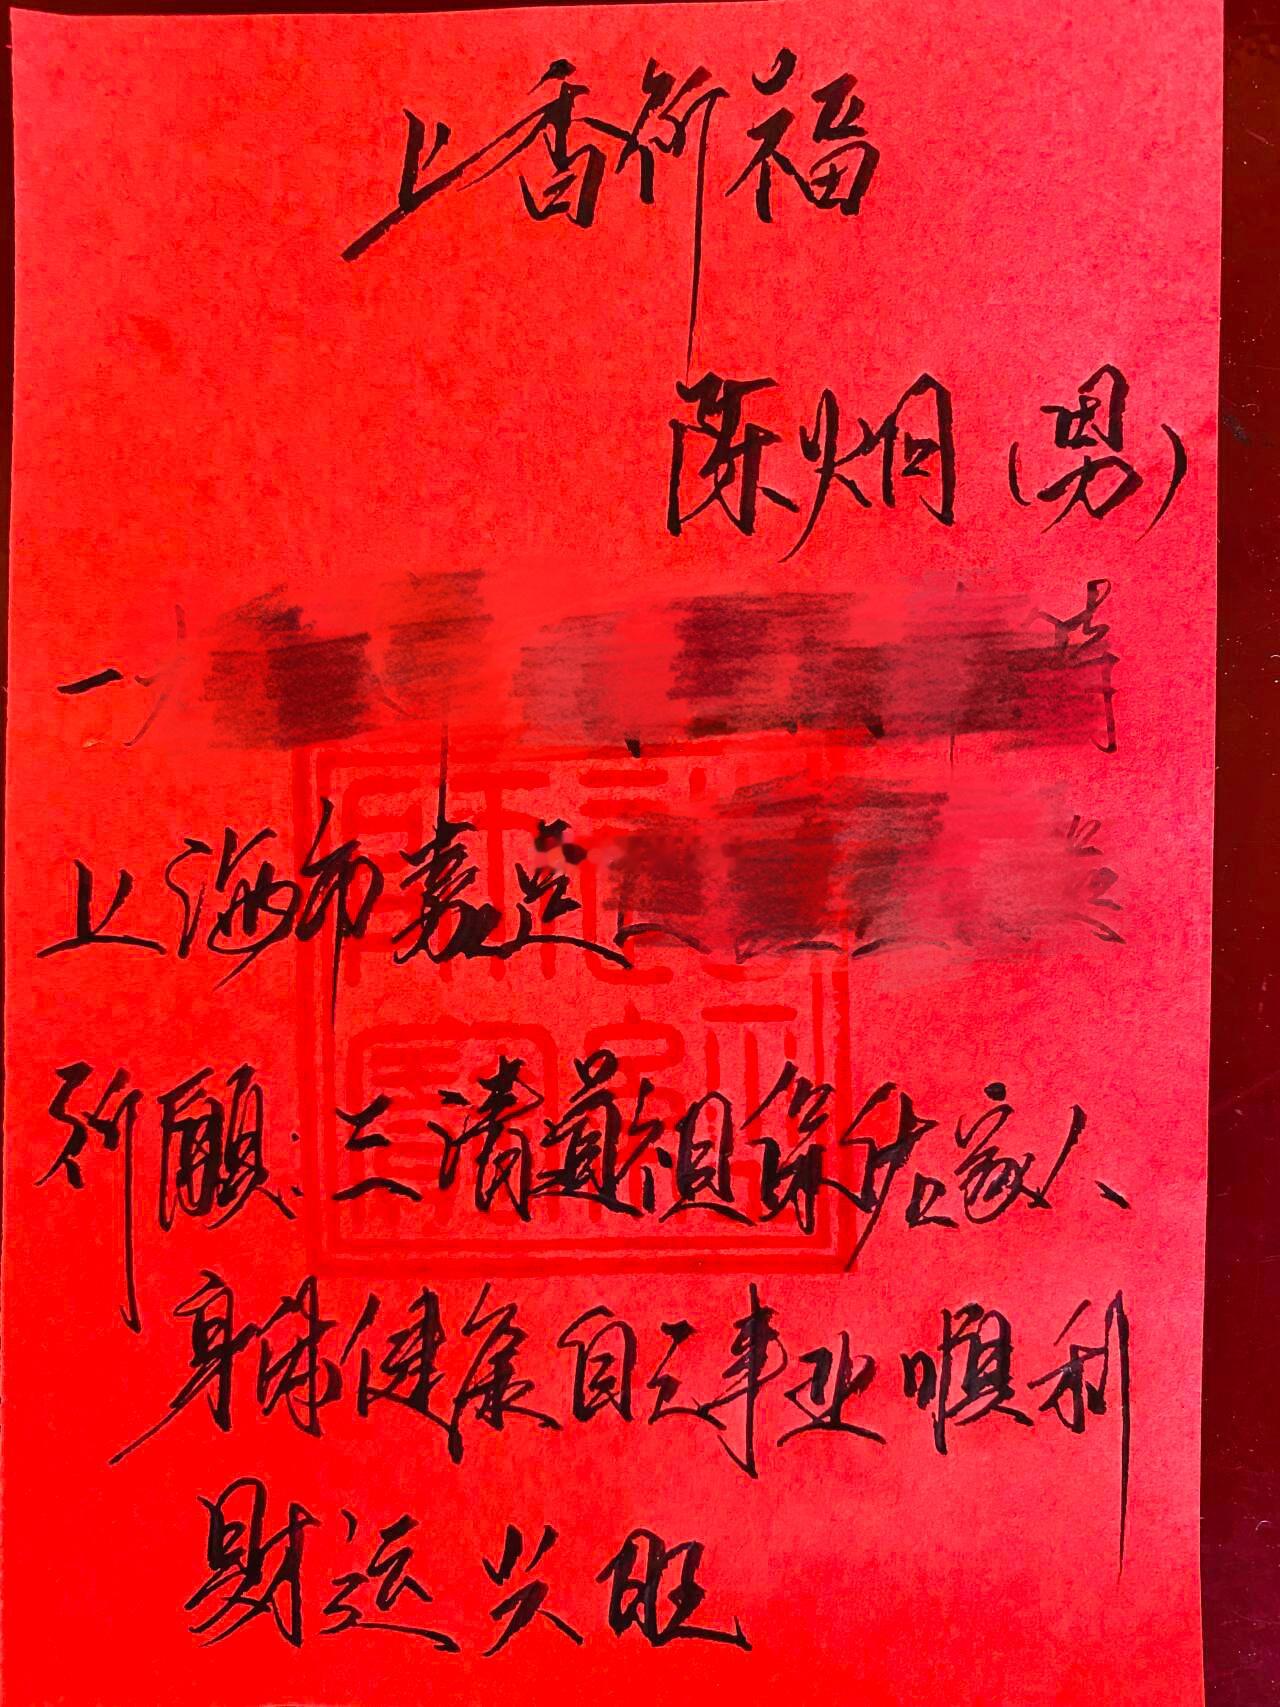 上香祈福
陈炯（男）
一九 时
上海市嘉定区
祈願：三清道祖保佑家人
身体健康自己事业顺利
财运兴旺